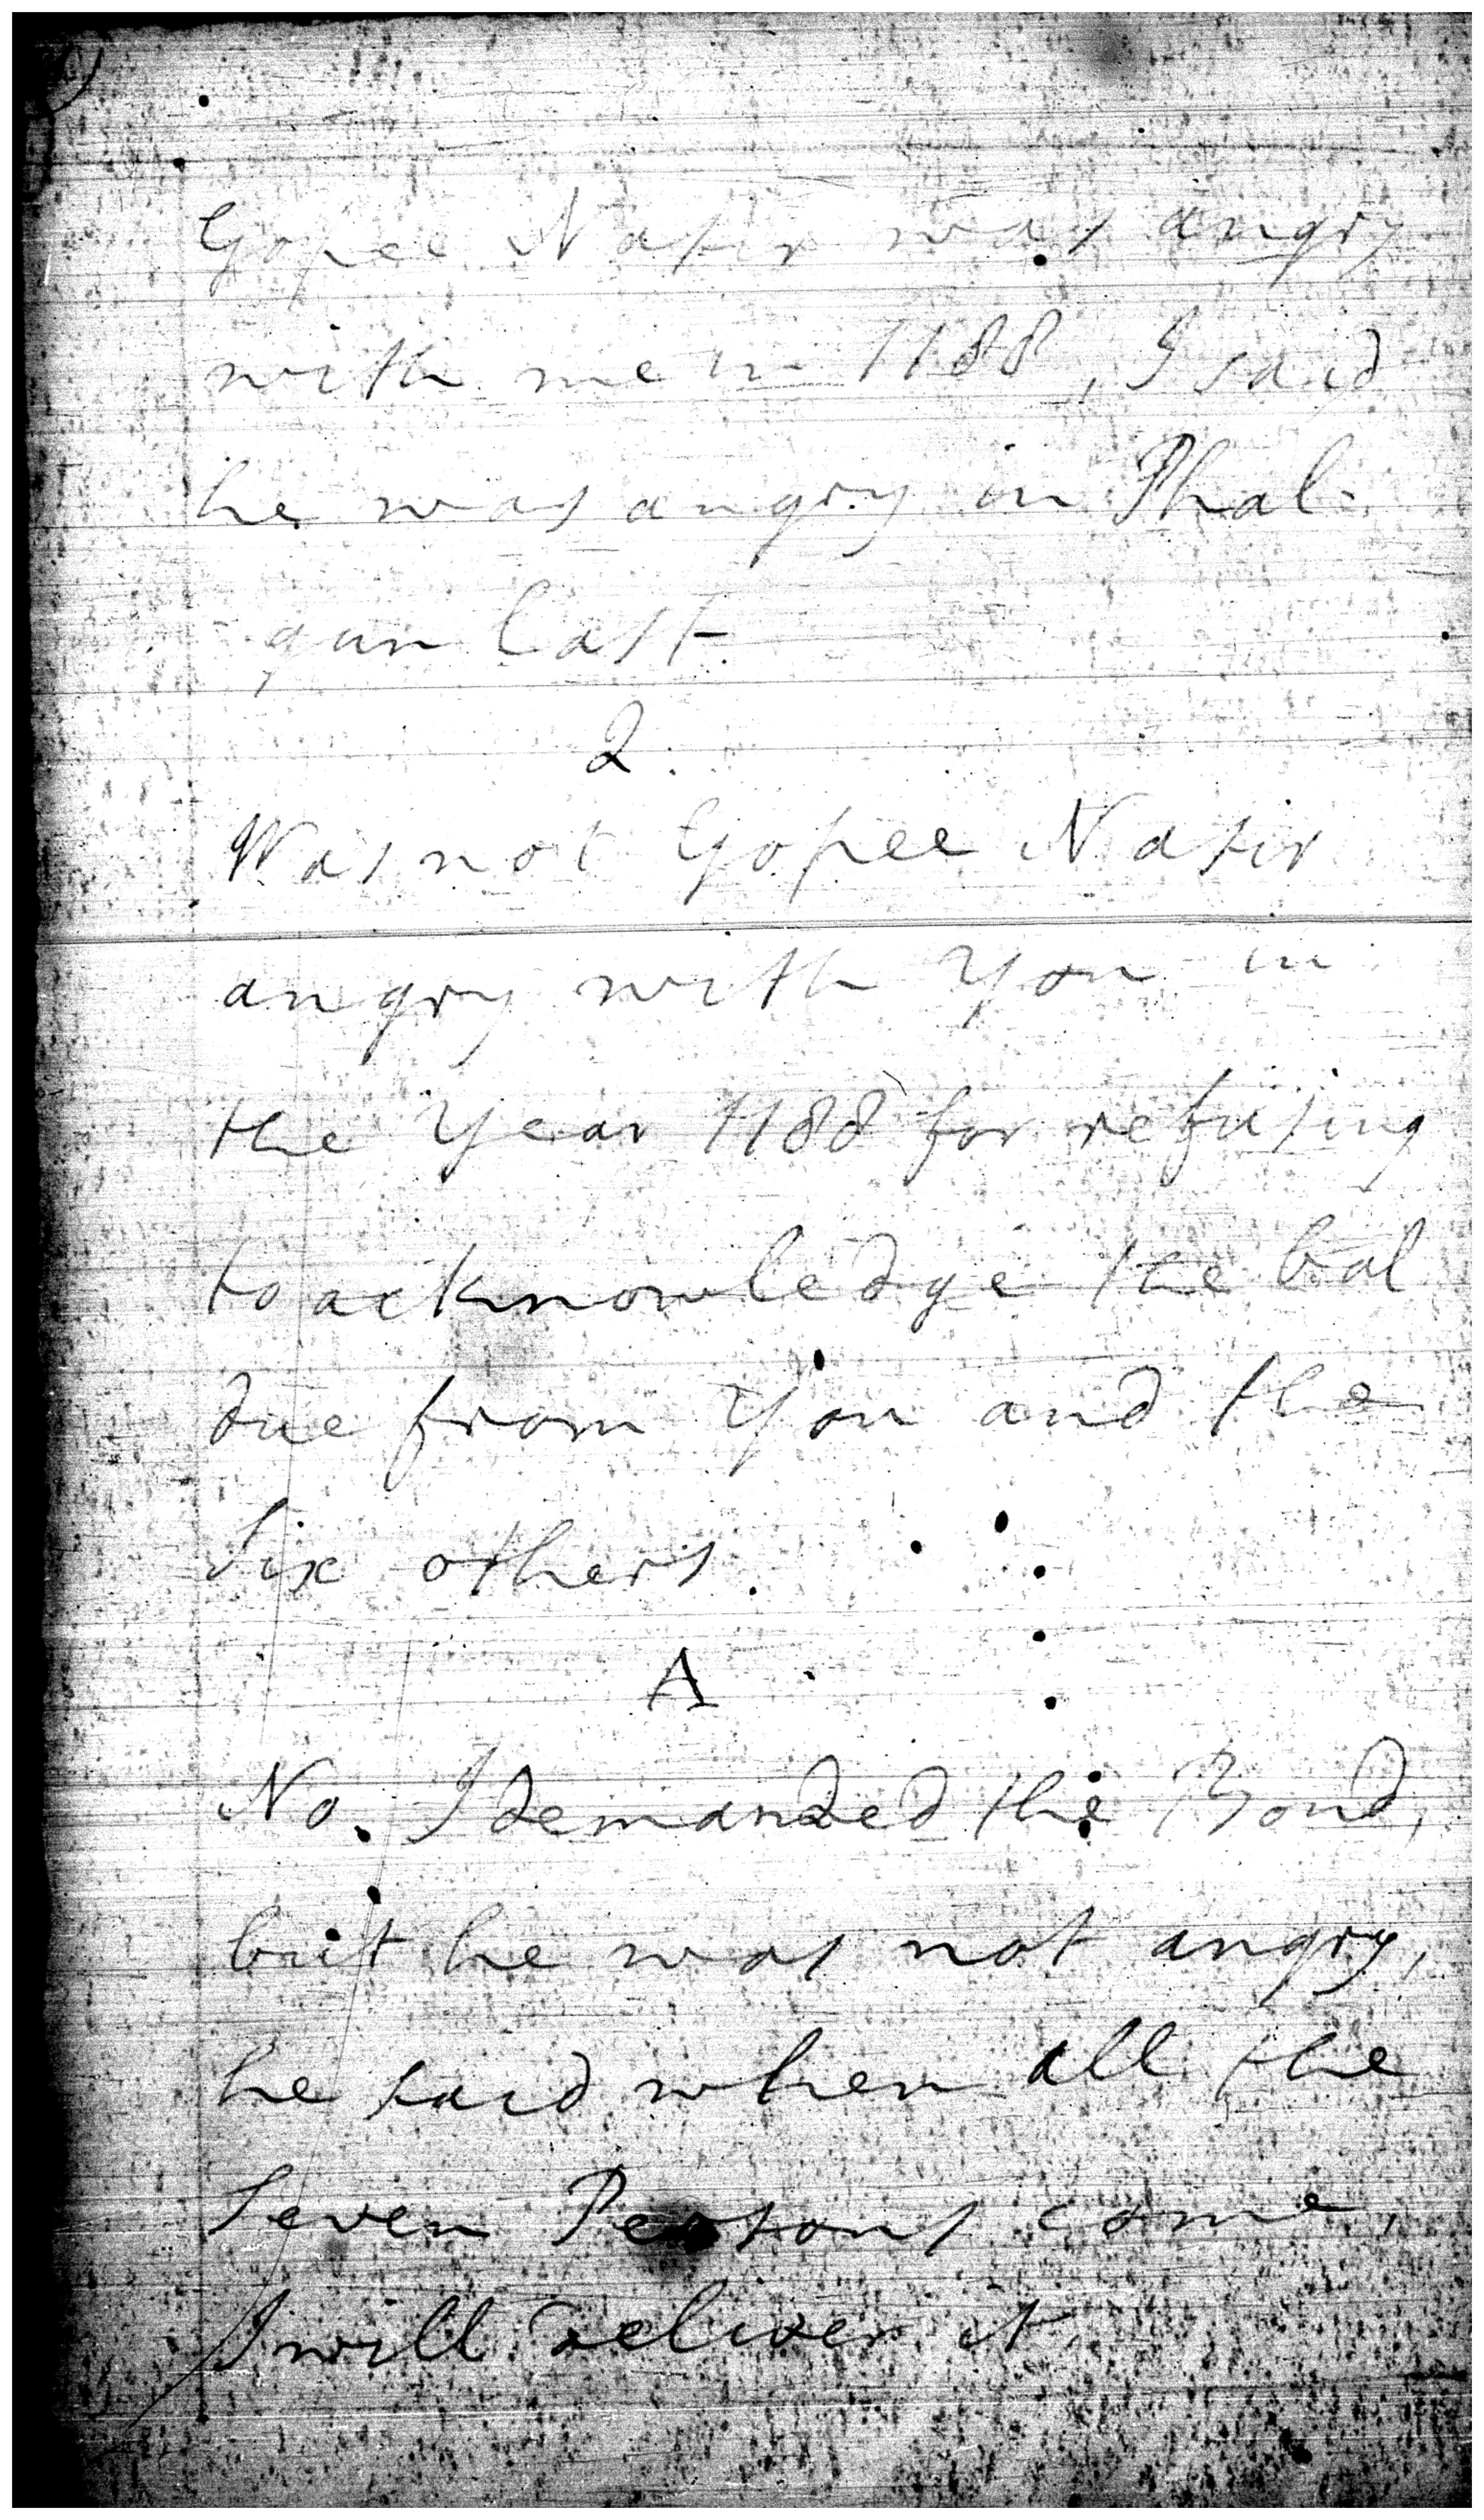 Gopee Nasir was angry
with me in 1188, I said
he was angry in Phal-
gun last
Q.
Was not Gopee Nasir
angry with You in
the Year 1188 for refusing
to acknowledge the bal
due from You and the
Six others.
A
No. I demanded the Bond,
but he was not angry,
he said when all the
Seven Persons come,
I will deliver it